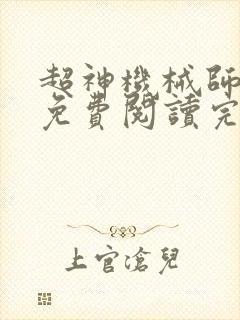 超神機械師
免費閱讀完
上官滄兒